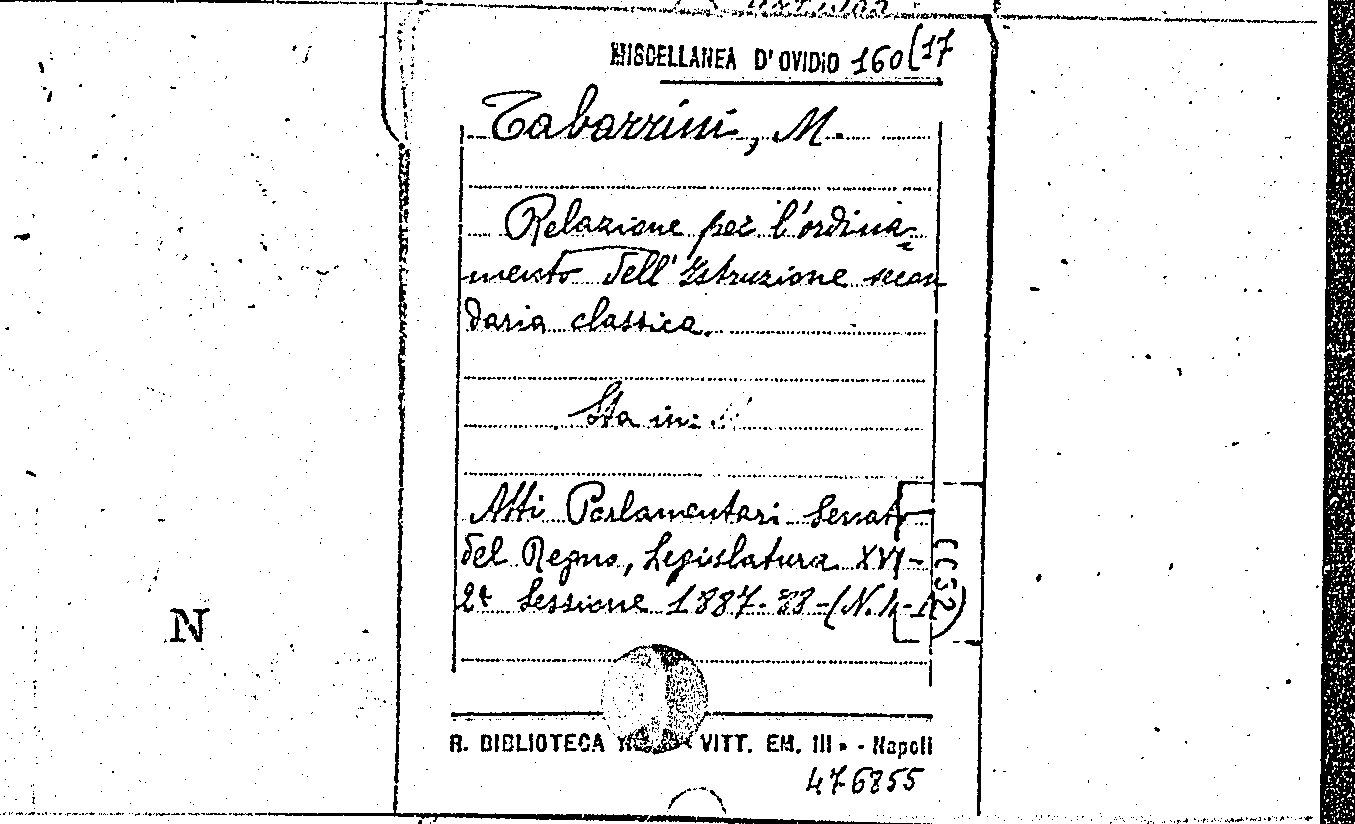 MISCELLANEA D'OVIDIO 160(17
Tabarrini, M.
Relazione per l'ordina-
mento dell'Istruzione secon
daria classica.
Sta in:
Atti Parlamentari Senato
del Regno, Legislatura XVI-
2ª Sessione 1887-88-(N.
N
R. BIBLIOTECA VITT. EM. III - Napoli
476855